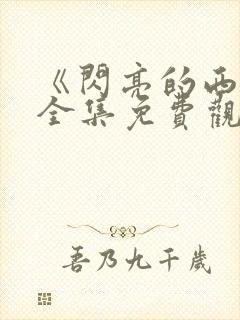 《閃亮的西
全集免費觀
吾乃九千歲